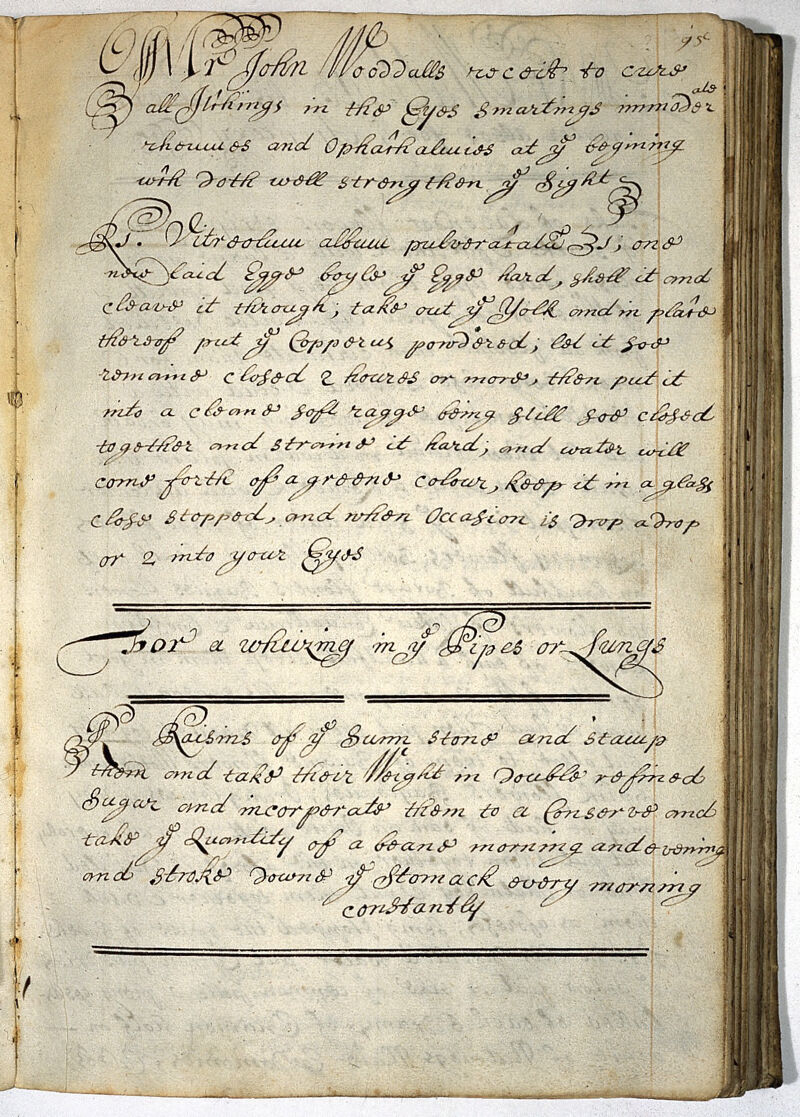 95
Mr John Wooddalls receit to cure
all Itchings in the Eyes smartings immoderate
rheumes and Ophathalmies at ye begining
wch doth well strengthen ye Sight
Rs. Vitreolum album pulveratatū ʒs; one
new laid Egge boyle ye Egge hard, shell it and
cleave it through; take out ye Yolk and in place
thereof put ye Copperus powdered; let it soe
remaine closed 2 houres or more, then put it
into a cleane soft ragge being still soe closed
together and straine it hard; and water will
come forth of a greene colour, keep it in a glass
close stopped, and when Occasion is drop a drop
or 2 into your Eyes
For a wheizing in ye Pipes or Lungs
R Raisins of ye Sunn stone and stamp
them and take their Weight in double refined
Sugar and incorperate them to a Conserve and
take ye Quantity of a beane morning and evening
and stroke downe ye Stomack every morning
constantly